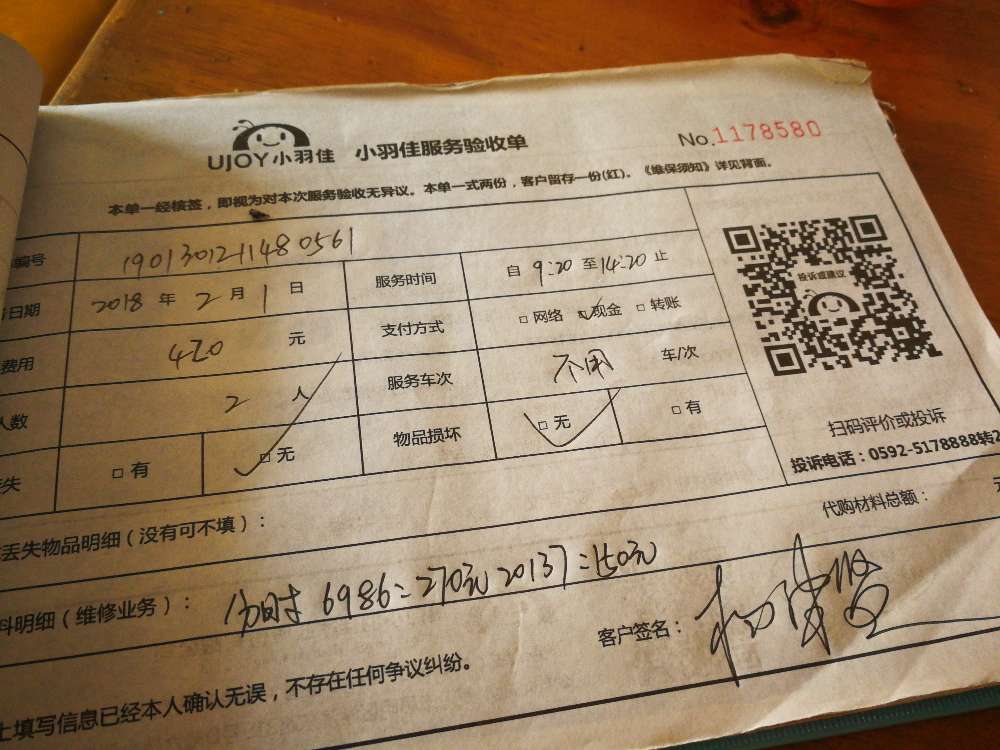 UJOY小羽佳 小羽佳服务验收单 No.1178580
本单一经核签，即视为对本次服务验收无异议。本单一式两份，客户留存一份(红)。《维保须知》详见背面。
编号 1901301211480561
日期 2018 年 2 月 1 日 服务时间 自 9:20 至 14:20 止
费用 420 元 支付方式 □ 网络 □ 现金 □ 转账
人数 2 人 服务车次 不用 车/次
失 □ 有 □ 无 物品损坏 □ 无 □ 有
投诉或建议
扫码评价或投诉
投诉电话：0592-5178888转2
丢失物品明细（没有可不填）：
代购材料总额： 元
料明细（维修业务）： 分时 6986=270元 20137=150元
客户签名：
上填写信息已经本人确认无误，不存在任何争议纠纷。